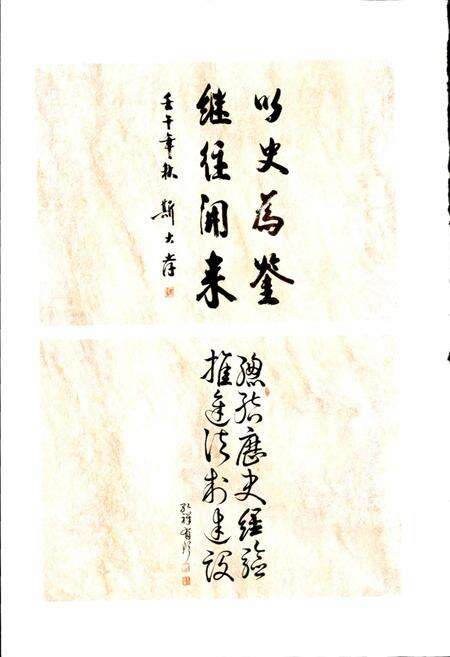 以史为鉴
继往开来
壬午年秋 斯大孝
总结历史经验
推进法制建设
孔祥有